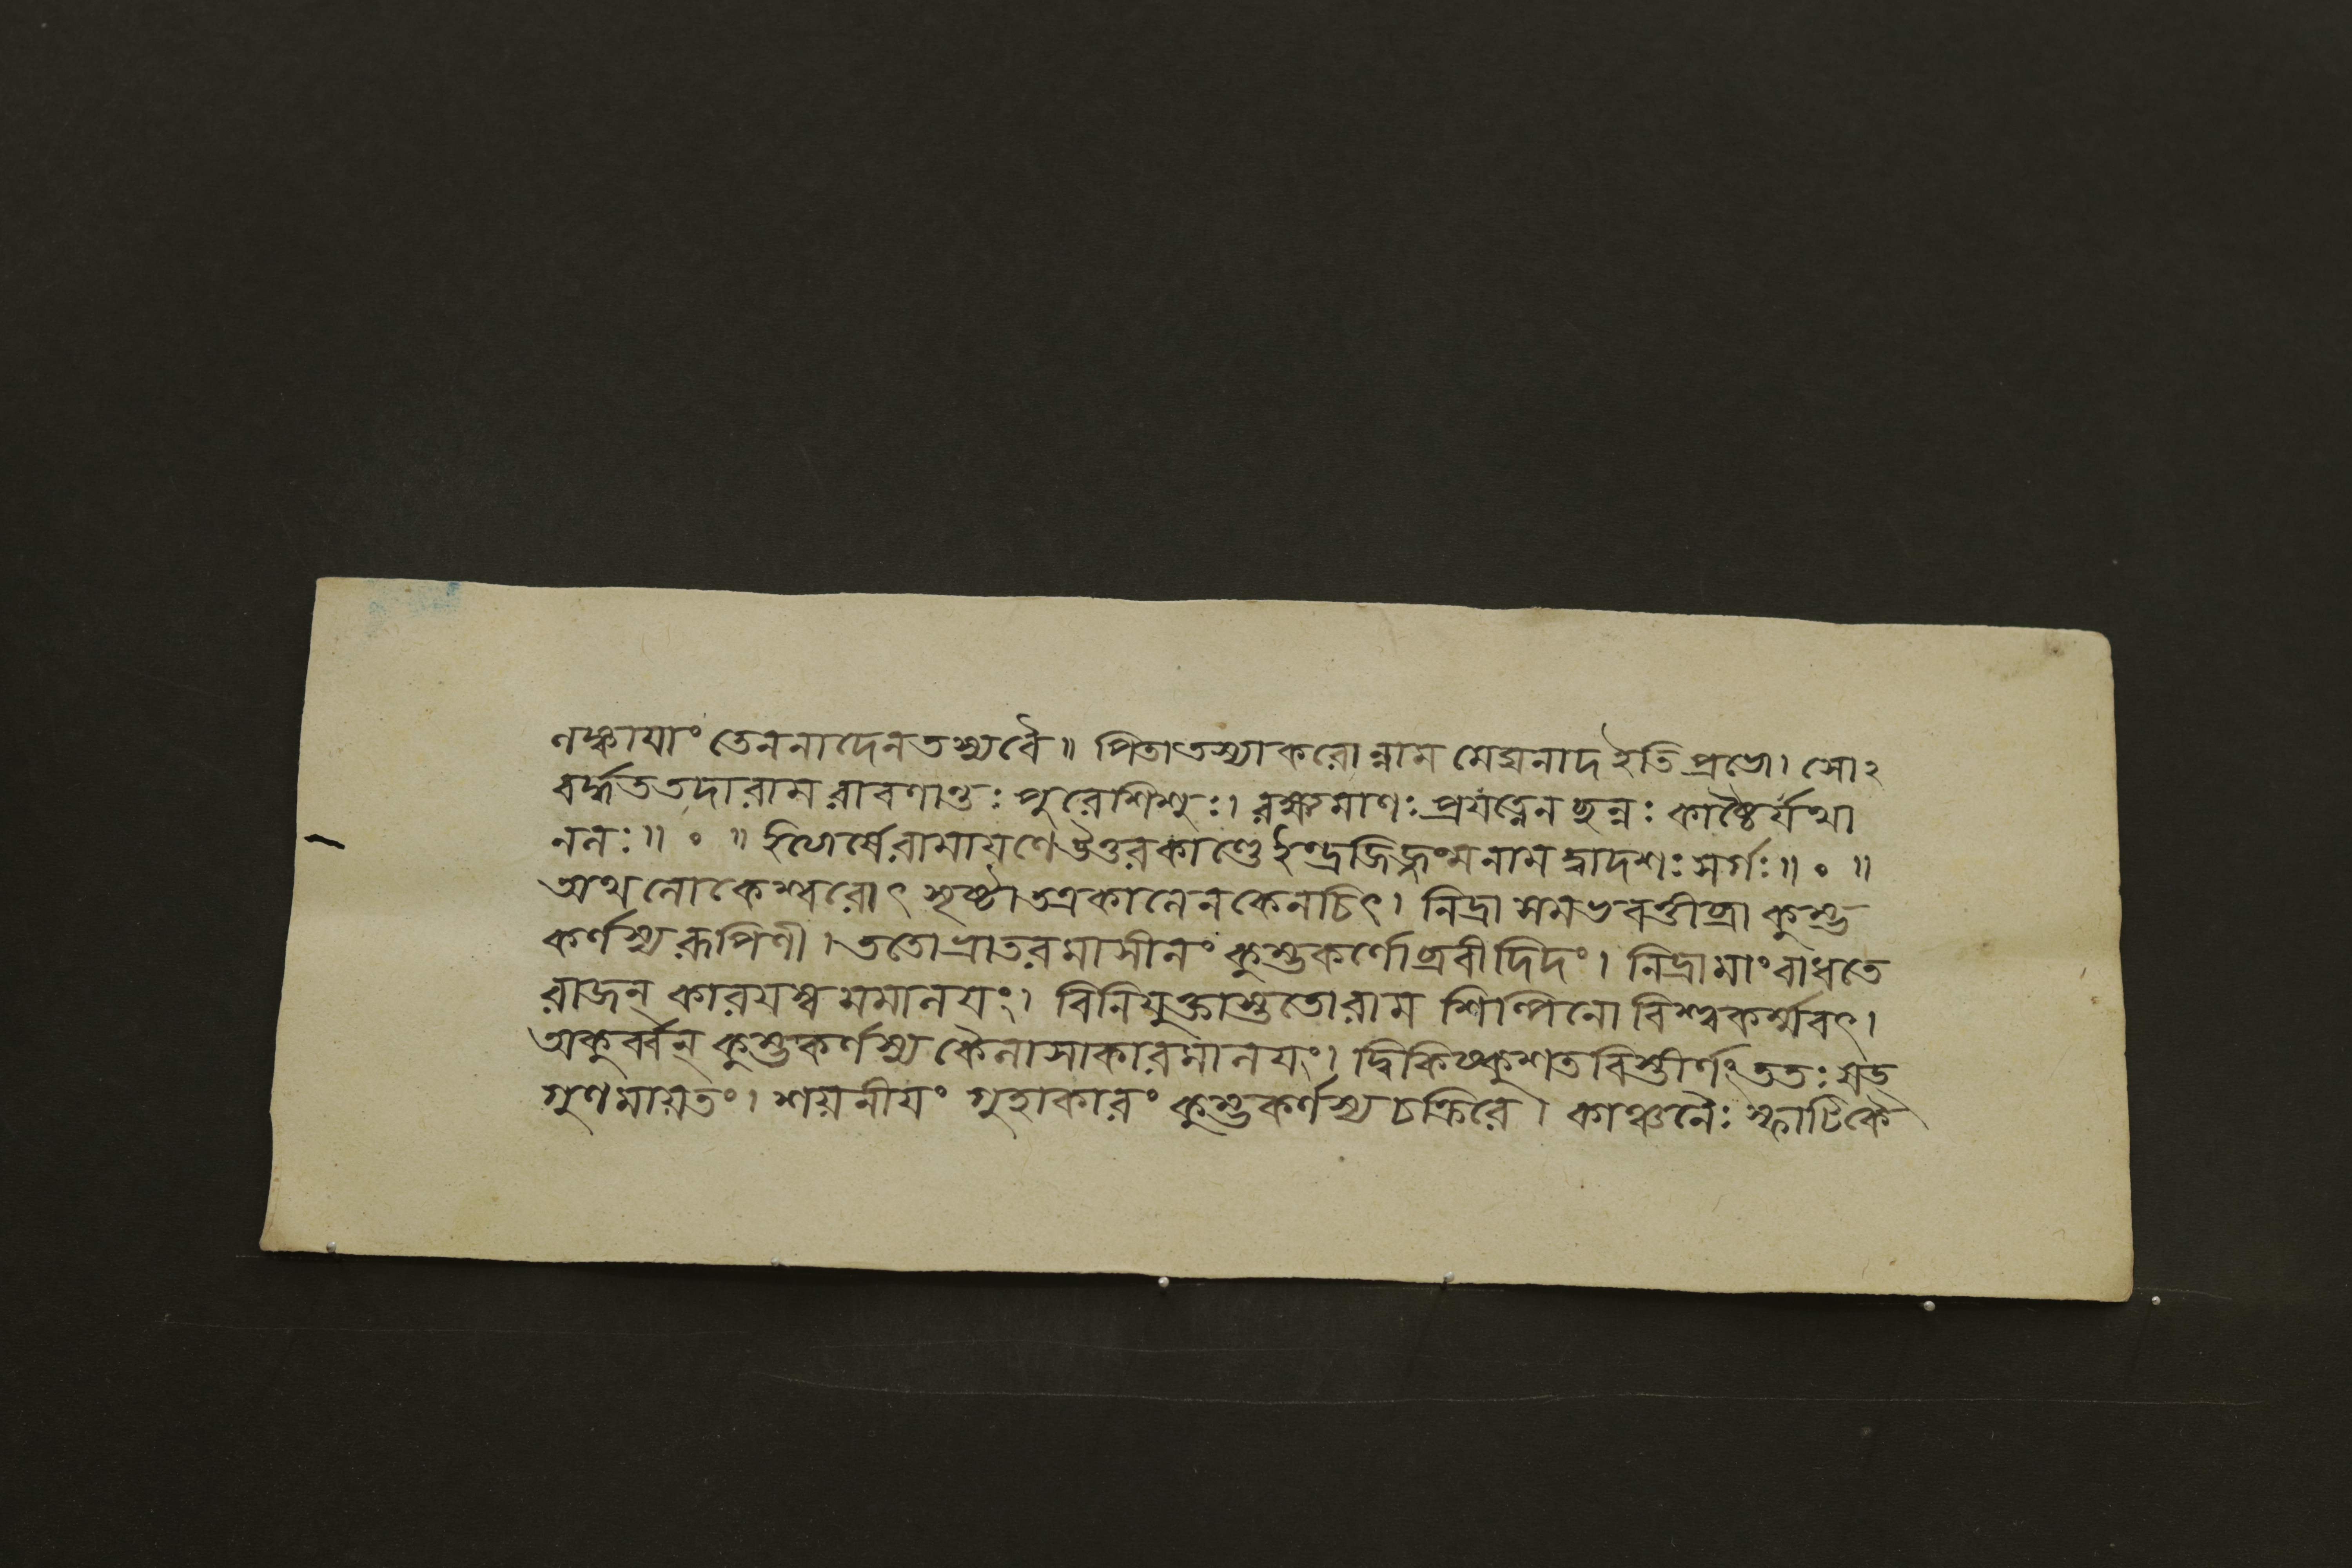 ণঙ্কায়াং তেননাদেনতস্যবৈ॥ পিতাতস্যাকরোন্নাম মেঘনাদ ইতি প্রভো। সোঽ
বর্দ্ধততদারাম রাবণান্তঃ পুরেশিশুঃ। রক্ষ্যমাণঃ প্রযত্নেন ছন্নঃ কাষ্ঠৈর্যথা
ননঃ॥ ॰ ॥ ইত্যার্ষেরামায়ণেউত্তরকাণ্ডে ইন্দ্রজিজ্জন্মনাম দ্বাদশঃ সর্গঃ॥ ॰ ॥
অথ নোকেশ্বরোৎ সৃষ্টাতত্রকানেনকেনচিৎ। নিদ্রা সমভবত্তীব্রা কুম্ভ
কর্ণস্যরূপিণী। ততোভ্রাতরমাসীনং কুম্ভকর্ণোব্রবীদিদং। নিদ্রামাংবাধতে
রাজন্ কারয়স্ব মমানয়ং। বিনিযুক্তাস্ততোরাম শিল্পিনো বিশ্বকর্ম্মবৎ।
অকুর্ব্বন্ কুম্ভকর্ণস্য কৈনাসাকারমানয়ং। দ্বিকিষ্কুশতবিস্তীর্ণং ততঃ ষড্
গুণমায়তং। শয়নীয়ং গুহাকারং কুম্ভকর্ণস্যচক্রিরে। কাঞ্চনৈঃ স্ফাটিকৈ